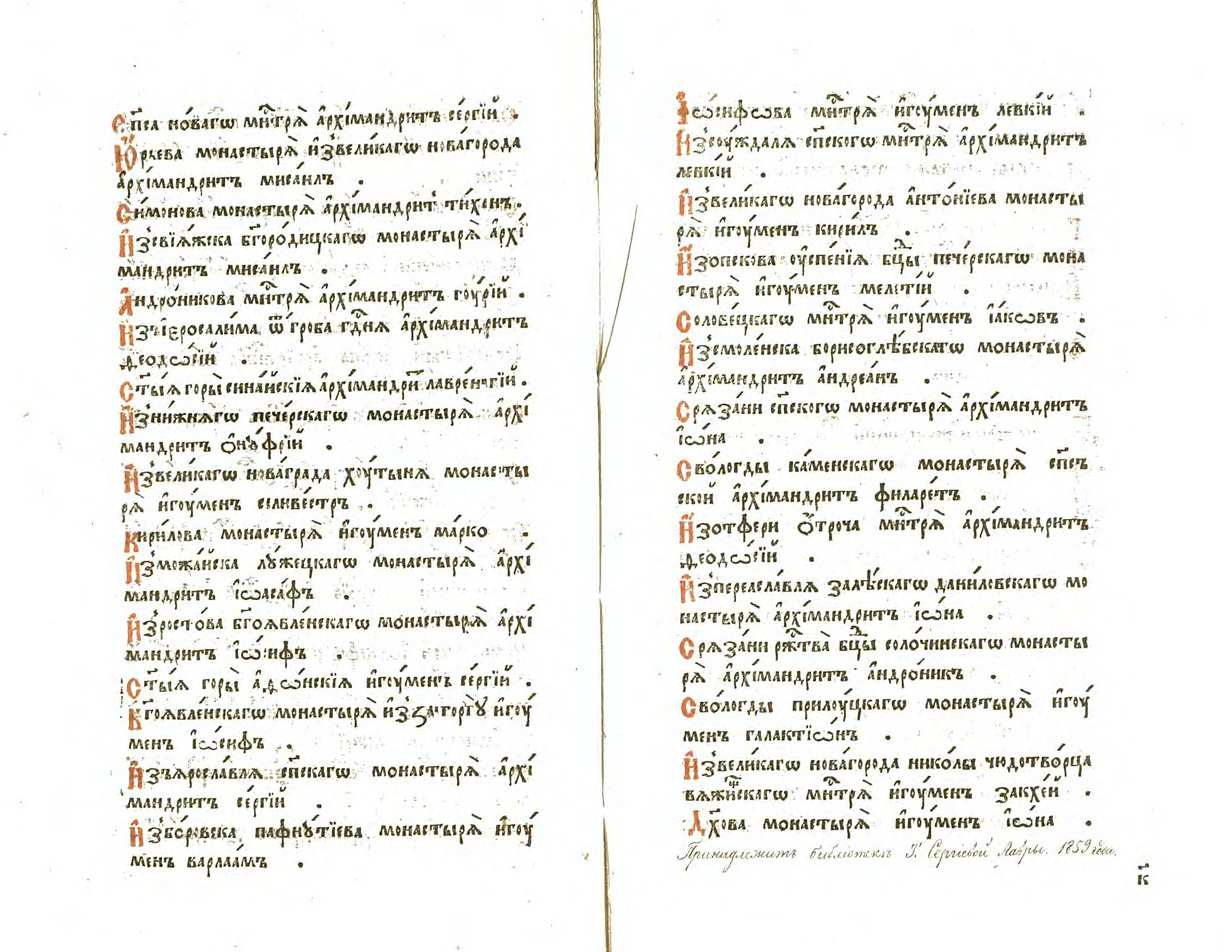 Сп҃са но́вагѡ мн҃трѧ̀ а҆рхїмандри́тъ се́ргїй .
Ю҆́рьева монастырѧ̀ и҆звели́кагѡ нова́города
а҆рхїмандритъ мисаи́лъ .
Си́монова монастырѧ̀ а҆рхїмандри́т ти́хонъ .
И҆зсвїѧ́жска бг҃оро́дицкагѡ монастырѧ̀ а҆рхї
мандритъ мисаи́лъ .
А҆ндро́никова мн҃трѧ̀ а҆рхїмандритъ гоу́рїй .
И҆зъїєросали́ма, ѿ гро́ба гд҃нѧ а҆рхїмандритъ
ѳеодѡ́сїй .
Ст҃ы́ѧ горы̀ сина́йскїѧ а҆рхїмандрит лавре́нтїй .
И҆знижнѧгѡ пече́рскагѡ монастырѧ̀ а҆рхї
мандритъ ѻ҆нꙋ́фрїй .
И҆звели́кагѡ нова́града хоу́тынѧ монасты
рѧ̀ и҆гоу́менъ селиве́стръ .
Кири́лова монастырѧ̀ и҆гоу́менъ ма́рко .
И҆зможа́йска лꙋ́жецкагѡ монастырѧ̀ а҆рхї
мандри́тъ і҆ѡаса́фъ .
И҆зросто́ва бг҃оѧвле́нскагѡ монастырѧ̀ а҆рхї
мандритъ і҆ѡ́сифъ .
Ст҃ы́ѧ горы̀ а҆ѳѡ́нскїѧ и҆гоу́менъ се́ргїй .
Бг҃оѧвле́нскагѡ монастырѧ̀ и҆ззаторгꙋ̀ и҆гоу́
менъ і҆ѡ́сифъ .
И҆зъѧросла́влѧ сп҃скагѡ монастырѧ̀ а҆рхї
мандритъ се́ргїй .
И҆збо́ровска пафнꙋ́тїева монастырѧ̀ и҆гоу́
менъ варлаа́мъ .
І҆ѡ́сифѡва мн҃трѧ̀ и҆гоу́менъ левкі́й .
И҆зсоу́ждалѧ сп҃скогѡ мн҃трѧ̀ а҆рхїмандритъ
левкі́й .
И҆звели́кагѡ нова́города анто́нїева монасты
рѧ̀ и҆гоу́менъ кири́лъ .
И҆зопскова оу҆спе́нїѧ бц҃ы пече́рскагѡ мона
стырѧ̀ и҆гоу́менъ меле́тїй .
Солове́цкагѡ мн҃трѧ̀ и҆гоу́менъ і҆а́кѡвъ .
И҆зсмоле́нска борисоглѣ́бскагѡ монастырѧ̀
а҆рхїмандритъ а҆ндреа́нъ .
Срѧза́ни сп҃скогѡ монастырѧ̀ а҆рхїмандритъ
і҆ѡ́на .
Сво́логды ка́менскагѡ монастырѧ̀ сп҃съ
ской а҆рхїмандритъ филаре́тъ .
И҆зотфери ѻ҆́троча мн҃трѧ̀ а҆рхїмандритъ
ѳеодѡ́сїй .
И҆зпереаславлѧ залѣ́скагѡ дани́ловскагѡ мо
настырѧ̀ а҆рхїмандритъ і҆ѡ́на .
Срѧза́ни рж҃тва̀ бц҃ы соло́чинскагѡ монасты
рѧ̀ а҆рхїмандритъ а҆ндро́никъ .
Сво́логды прилоу́цкагѡ монастырѧ̀ и҆гоу́
менъ галактїѡ́нъ .
И҆звели́кагѡ нова́города нико́лы чюдотво́рца
вѧжи́скагѡ мн҃трѧ̀ и҆гоу́менъ закхе́й .
Дх҃ова монастырѧ̀ и҆гоу́менъ і҆ѡ́на .
Принадлежитъ библіотекѣ Т. Сергіевой Лавры. 1859 года.
к҃